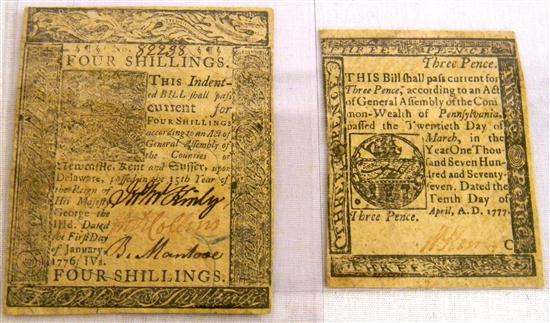 No. 82238
FOUR SHILLINGS.
THIS Indent-
ed BILL shall pass
current for
FOUR SHILLINGS
according to an Act of
General Assembly of
the Counties of
Newcastle, Kent and Sussex, upon
Delaware, passed in the 15th Year of
the Reign of
His Majesty
George the
IIId. Dated
the First Day
of January,
1776. IVs.
Collins
B. Manlove
FOUR SHILLINGS.
THREE PENCE
Three Pence.
THIS Bill shall pass current for
Three Pence, according to an Act
of General Assembly of the Com
mon-Wealth of Pennsylvania,
passed the Twentieth Day of
March, in the
Year One Thou
sand Seven Hun
dred and Seventy-
seven. Dated the
Tenth Day of
April, A. D. 1777.
Three Pence.
C
THREE PENCE
THREE PENCE